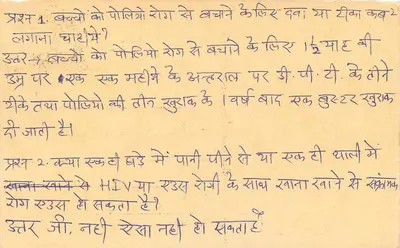 प्रश्न 1. बच्चो को पोलियो रोग से बचाने के लिए दवा या टीका कब 2
लगाना चाहीये?
उत्तर → बच्चो को पोलियो रोग से बचाने के लिए 1½ माह की
उम्र पर एक एक महीने के अन्तराल पर डी. पी. टी. के तीन
टीके तथा पोलियो की तीन खुराक के 1 वर्ष बाद एक बुस्टर खुराक
दी जाती है।
प्रश्न 2. क्या एक ही घडे में पानी पीने से या एक ही थाली में
HIV या एड्स रोगी के साथ खाना खाने से संक्रामक
रोग एड्स हो सकता है?
उत्तर जी, नही ऐसा नही हो सकता है